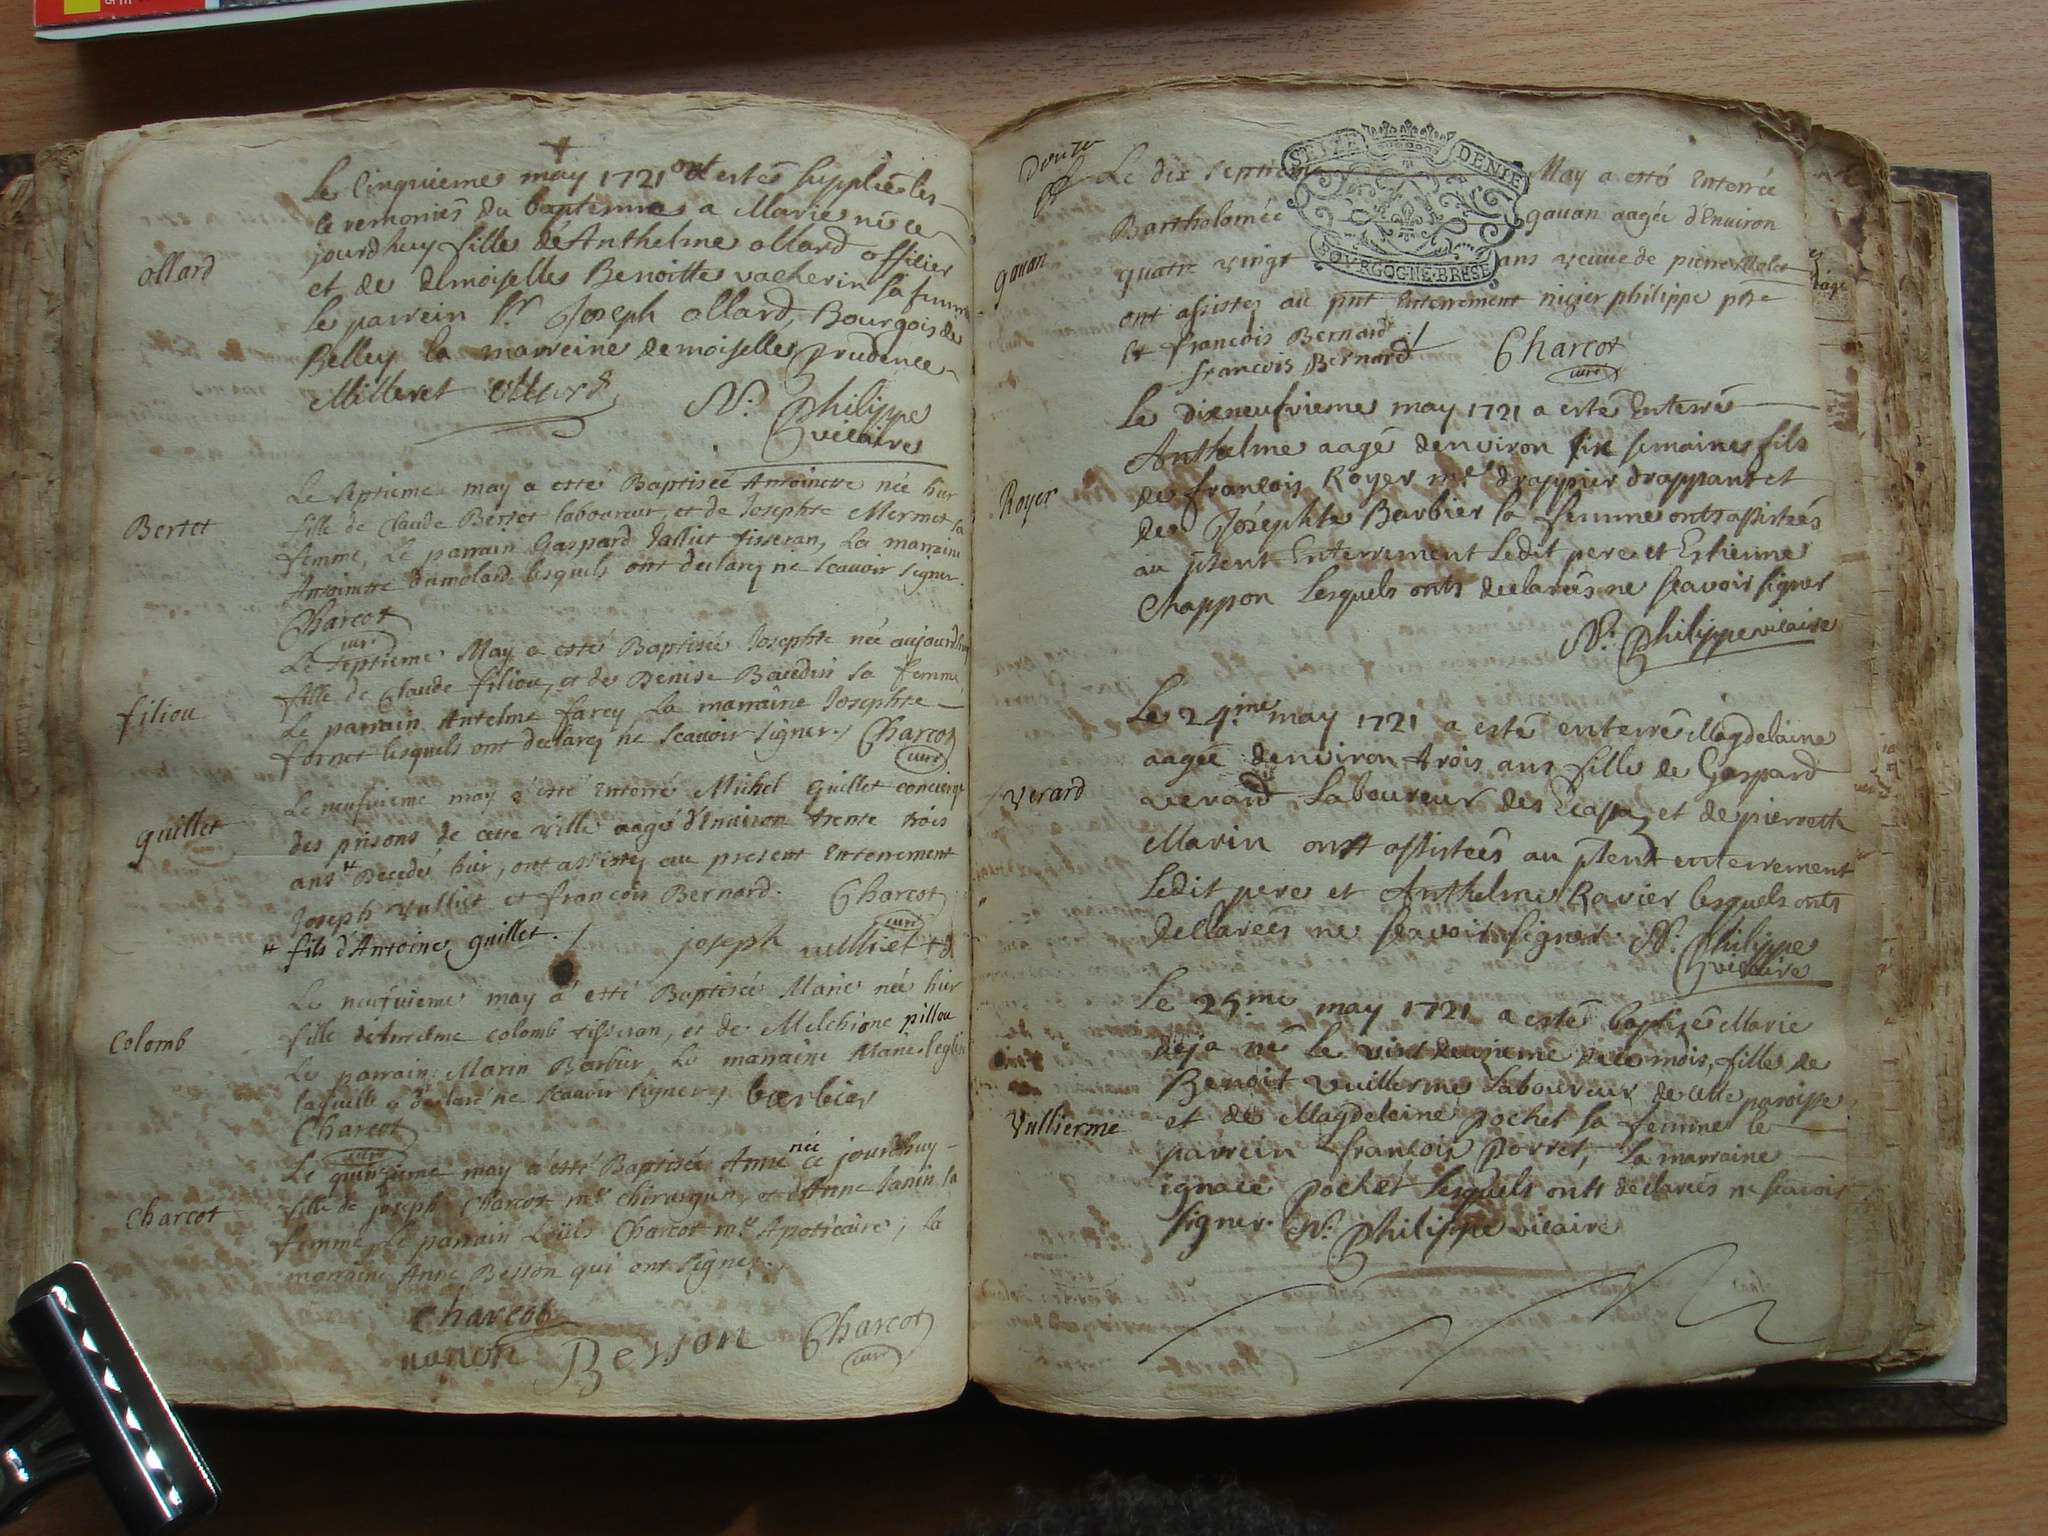 Le Cinquieme may 1721 ont estés supplée les
ceremonies du baptemme a Marie née ce
jourdhuy fille de Anthelme ollard officier
ollard
et de demoiselles Benoitte vacherin sa femme
le parrein Sr Joseph ollard, Bourgois de
Belley la marreine demoiselles Prudence
Milleret ollard
N. Philippe
vicaire
Le septieme may a esté Baptisée Antoinette née hier
Bertet
fille de Claude Bertet laboureur, et de Josephte Mermet sa
femme, Le parrain Gaspard Jalliet tisseran, La marraine
Antoinette Dumolard lesquels ont declarez ne scauoir signer.
Charcot
curé
Le septieme May a esté Baptisée Josephte née aujourdhuy
filiou
fille de Claude filiou, et de Denise Baudin sa femme
Le parrain Antelme farcy La marraine Josephte
fornet lesquels ont declarez ne scauoir signer. Charcot
curé
Le neufuieme may a esté Enterré Michel Guillet concierge
guillet
des prisons de cette ville aagé d'Enuiron trente trois
ans Decedé hier, ont assistez au present Enterrement
Joseph Vulliet et françois Bernard. Charcot
curé
fils d'Antoine guillet. joseph vulliet
Le neufuieme may a esté Baptisée Marie née hier
Colomb
fille de Antelme Colomb tisseran, et de Melchione pillou
Le parrain Marin Barbier, La marraine Marie
laquelle a declaré ne scauoir signer, barbier
Charcot
curé
née
Le quinzieme may a esté Baptisée Anne ce jourdhuy
Charcot
fille de joseph Charcot me chirurgien, et d'Anne Janin sa
femme, Le parrain Loüis Charcot me Apoticaire, La
marraine Anne Besson qui ont signez.
Charcot
nanon Besson Charcot
curé
SEIZE DENIE
BOURGOGNE·BRESE
Le dix septieme May a esté Enterrée
Bartholomée gauan aagée d'Enuiron
gauan
quatre vingt ans veuue de pierre Molet
ont assistez au pnt Enterrement nizier philippe ptre
et françois Bernard
françois Bernard Charcot
curé
Le dixneufvieme may 1721 a esté Enterré
Anthelme aagé denviron six semaines fils
Royer
de françois Royer me drappier drappant et
de Josephte Barbier sa femme onts assistés
au pñsent Enterrement Ledit pere et Estienne
Chappon Lesquels onts declarés ne scavoir signer
N. Philippe vicaire
Le 24.me may 1721 a esté enterré Magdelaine
aagée denviron trois ans fille de Gaspard
Verard
verard Laboureur des Ecassaz et de pierrette
Marin ontt assistées au pñent enterrement
Ledit pere et Anthelme Ravier lesquels onts
dellarées ne scavoir signer. N. Philippe
vicaire
Le 25.me may 1721 a esté baptisé Marie
deja né le vint deuxieme du mois, fille de
Benoit vuillerme Laboureur de cette paroisse
Vullierme
et de Magdeleine pochet sa femme le
parrein françois Porret, La marraine
ignace pochet Lesquels ontt declarés ne scavoir
signer. N. Philippe vicaire